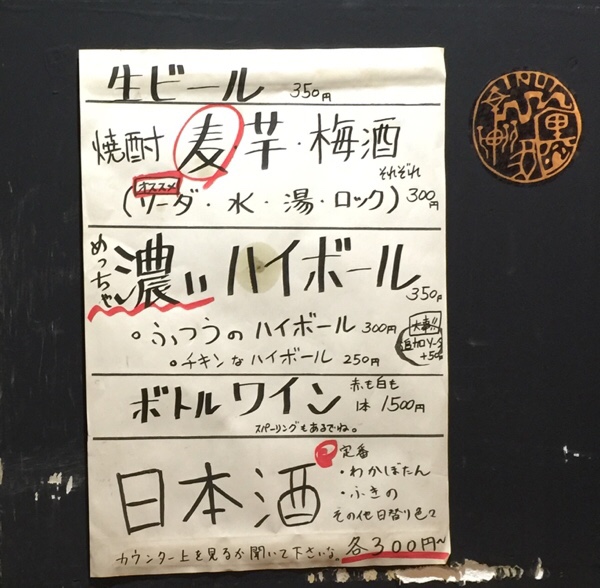 生ビール 350円
焼酎 麦・芋・梅酒
それぞれ
オススメ
(ソーダ・水・湯・ロック) 300円
めっちゃ濃いハイボール
350円
。ふつうのハイボール 300円
・チキンなハイボール 250円
大事!!
追加ソーダ
+50
ボトルワイン 赤も白も
1本 1500円
スパーリングもあるでね。
日本酒
定番
・わかぼたん
・ふきの
その他日替り色々
カウンター上を見るか聞いて下さいな。各300円~